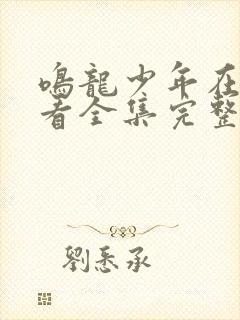 鳴龍少年在
看全集完整
劉悉承